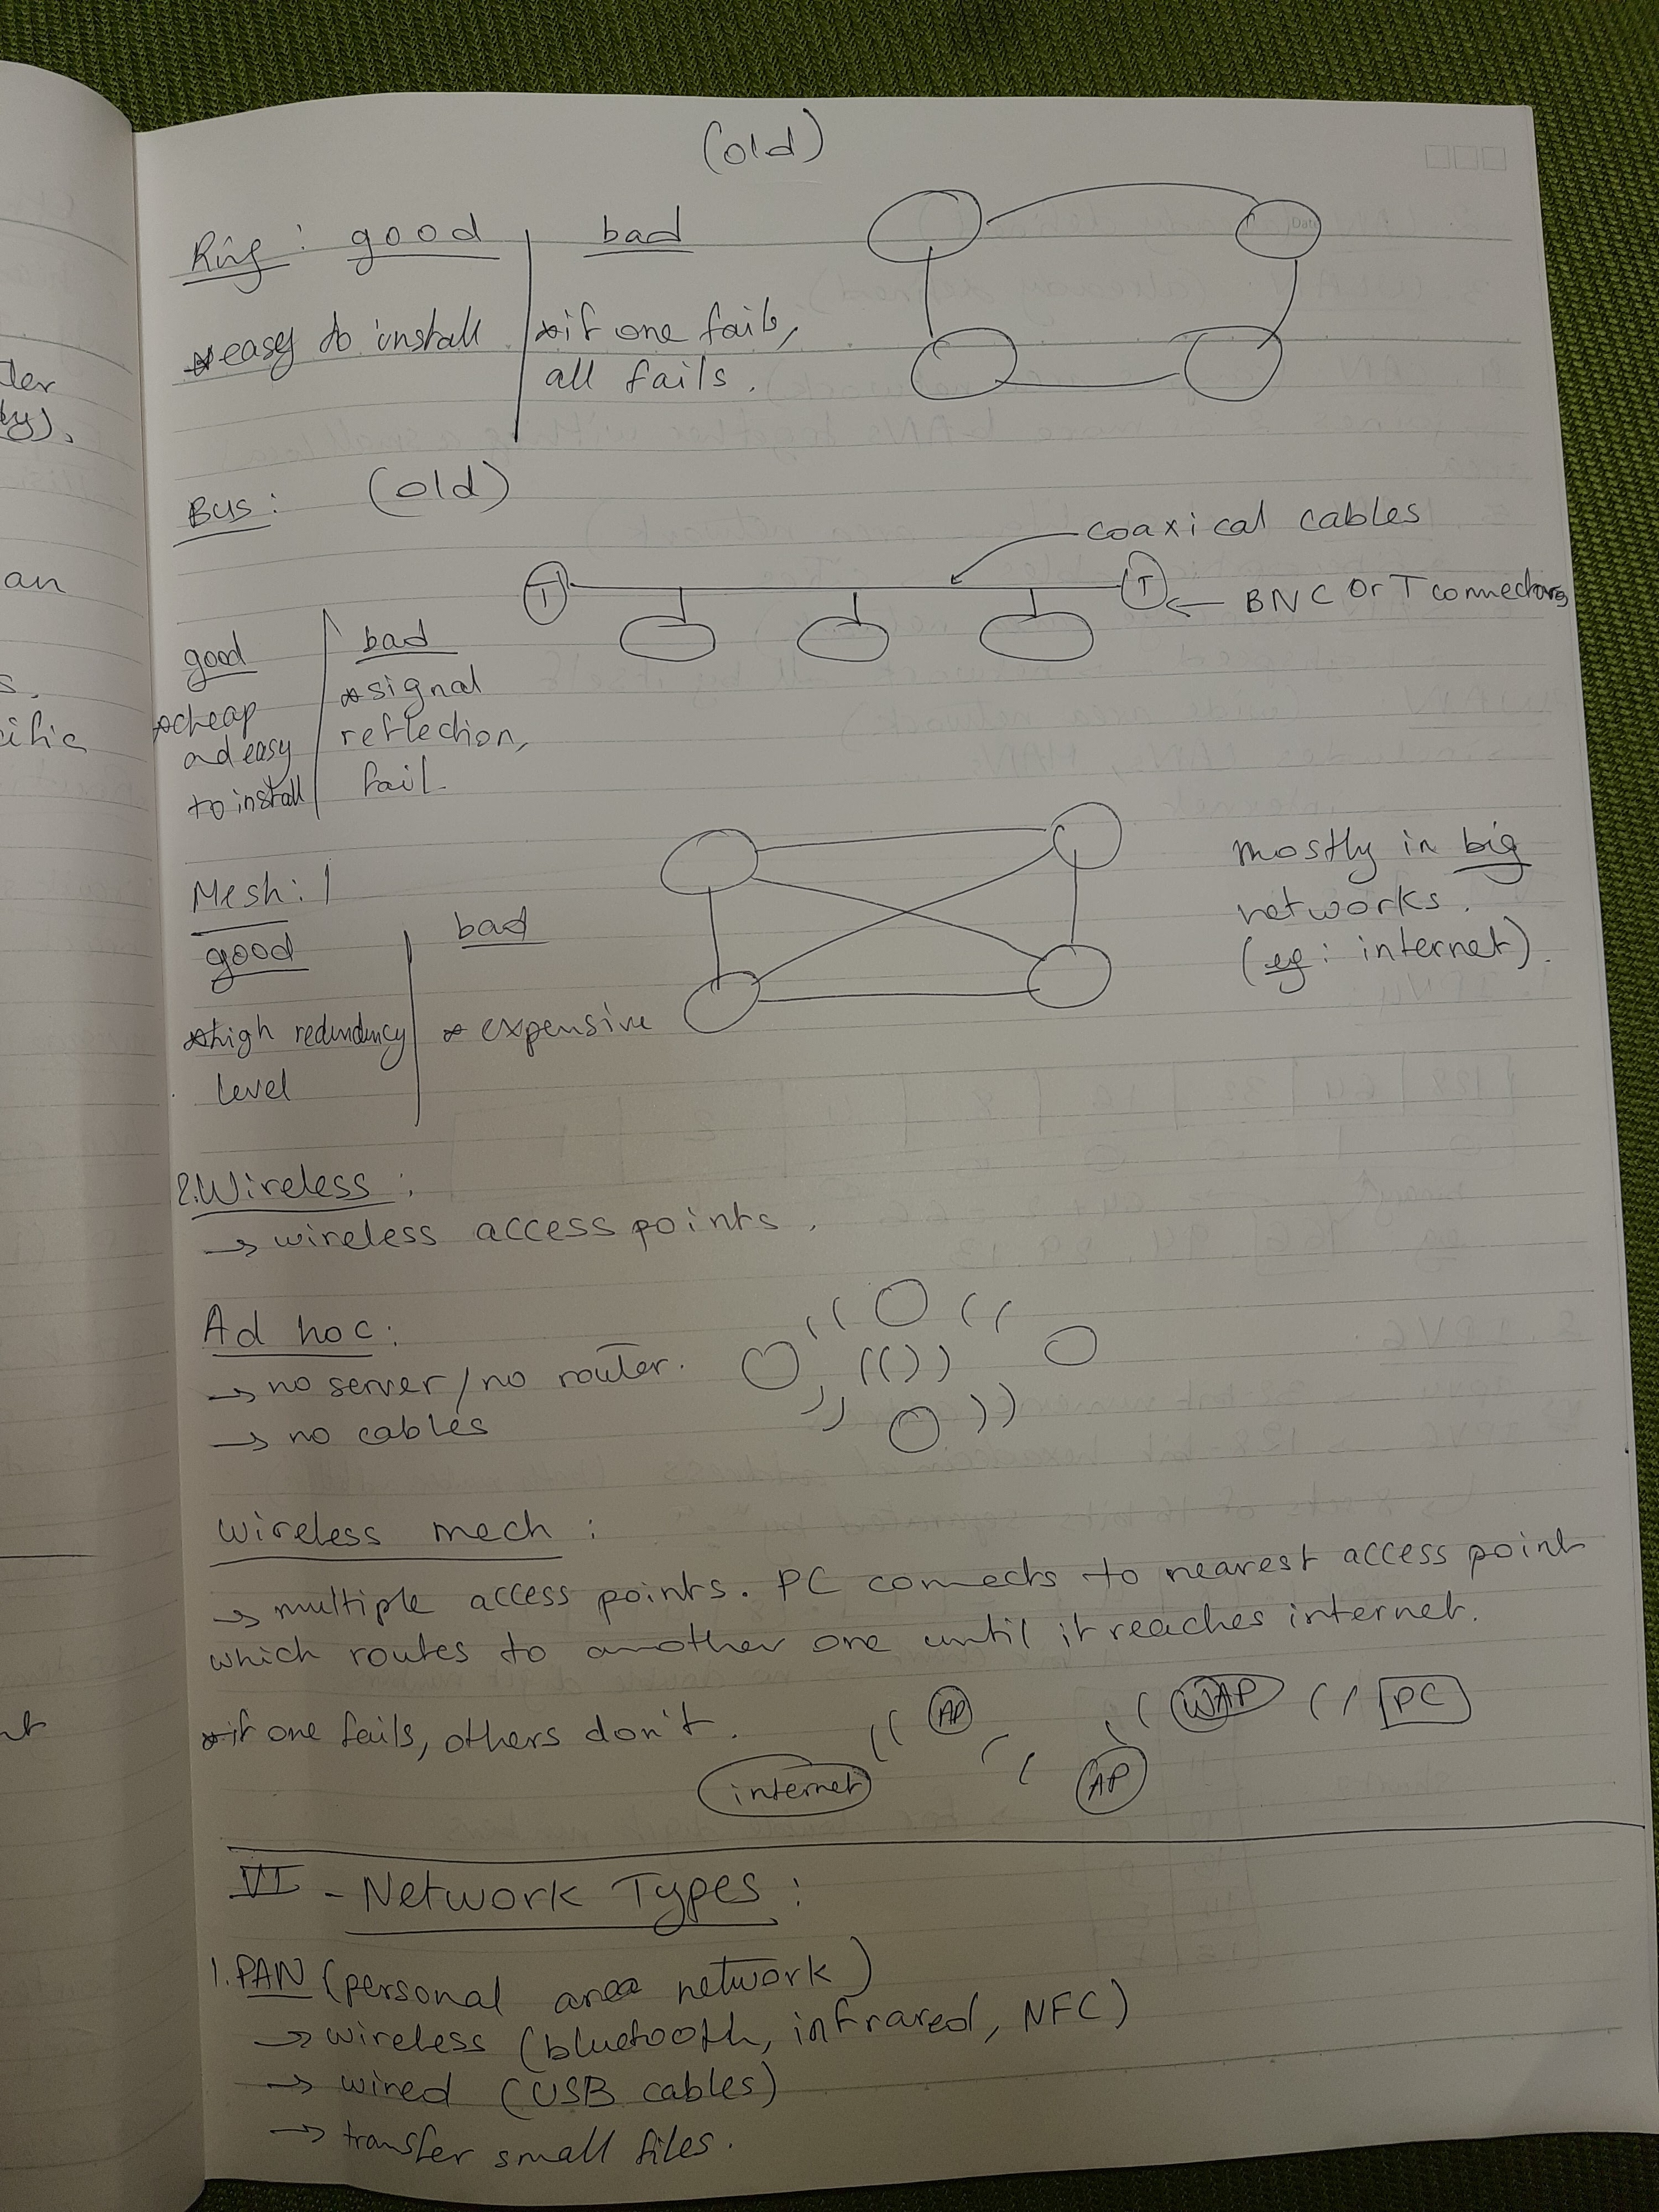 (old)
Ring: good bad
*easy to install
*if one fails,
all fails.
Date
Bus: (old)
coaxical cables
T T
BNC or T connectors
good
*cheap
ad easy
to install
bad
*signal
reflection,
fail.
Mesh:
good
*high redundancy
level
bad
* expensive
mostly in big
networks.
(eg: internet).
2.Wireless:
→ wireless access points.
Ad hoc:
→ no server/no router.
→ no cables
wireless mech:
→ multiple access points. PC connects to nearest access point
which routes to another one until it reaches internet.
*if one fails, others don't.
internet AP AP WAP PC
VI - Network Types:
1.PAN (personal area network)
→ wireless (bluetooth, infrared, NFC)
→ wired (USB cables)
→ transfer small files.
ter
ty).
an
s.
cific
nt